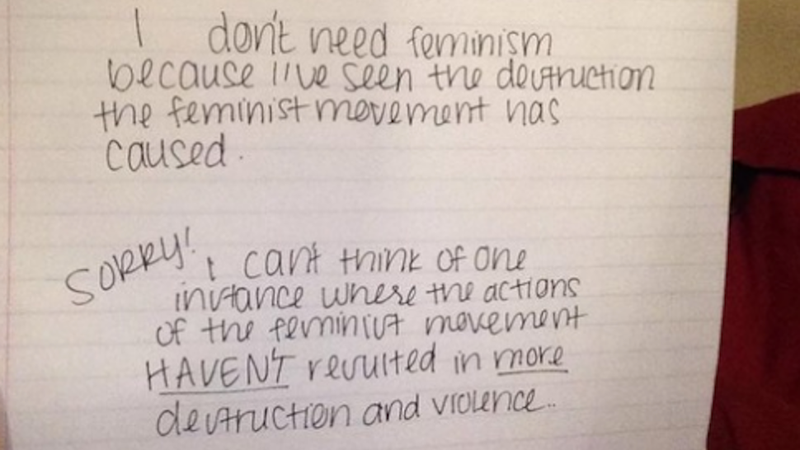 I don't need feminism
because I've seen the destruction
the feminist movement has
caused.
SORRY! I can't think of one
instance where the actions
of the feminist movement
HAVEN'T resulted in more
destruction and violence..